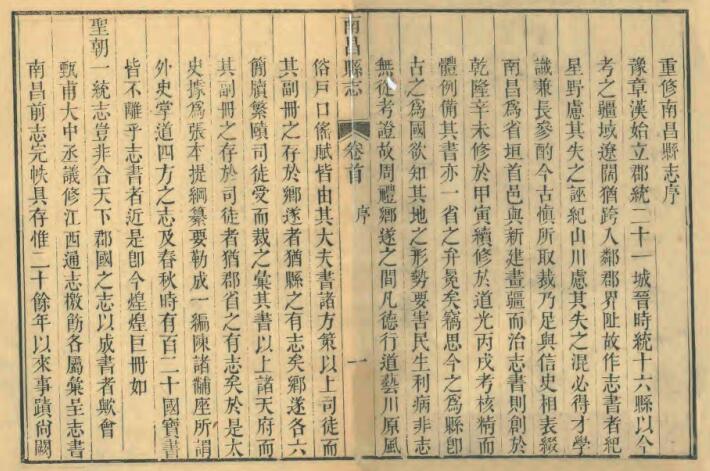 重修南昌縣志序
豫章漢始立郡統二十一城晉時統十六縣以今
考之疆域遼闊猶跨入鄰郡界趾故作志書者紀
星野慮其失之誣紀山川慮其失之混必得才學
識兼長參酌今古愼所取裁乃足與信史相表綴
南昌爲省垣首邑與新建畫疆而治志書則創於
乾隆辛未修於甲寅續修於道光丙戌考核精而
體例備其書亦一省之弁冕矣竊思今之爲縣卽
古之爲國欲知其地之形勢要害民生利病非志
無從考證故周禮鄉遂之間凡德行道藝川原風
南昌縣志
卷首
序
一
俗戸口徭賦皆由其大夫書諸方策以上司徒而
其副冊之存於鄉遂者猶縣之有志矣鄉遂各六
簡牘繁賾司徒受而裁之彙其書以上諸天府而
其副冊之存於司徒者猶郡首之有志矣於是太
史據爲張本提綱纂要勒成一編陳諸黼座所謂
外史掌道四方之志及春秋時有百二十國寶書
皆不離乎志書者近是卽今煌煌巨冊如
聖朝一統志豈非合天下郡國之志以成書者歟會
甄甫大中丞議修江西通志檄飭各屬彙呈志書
南昌前志完帙具存惟二十餘年以來事蹟尙闕